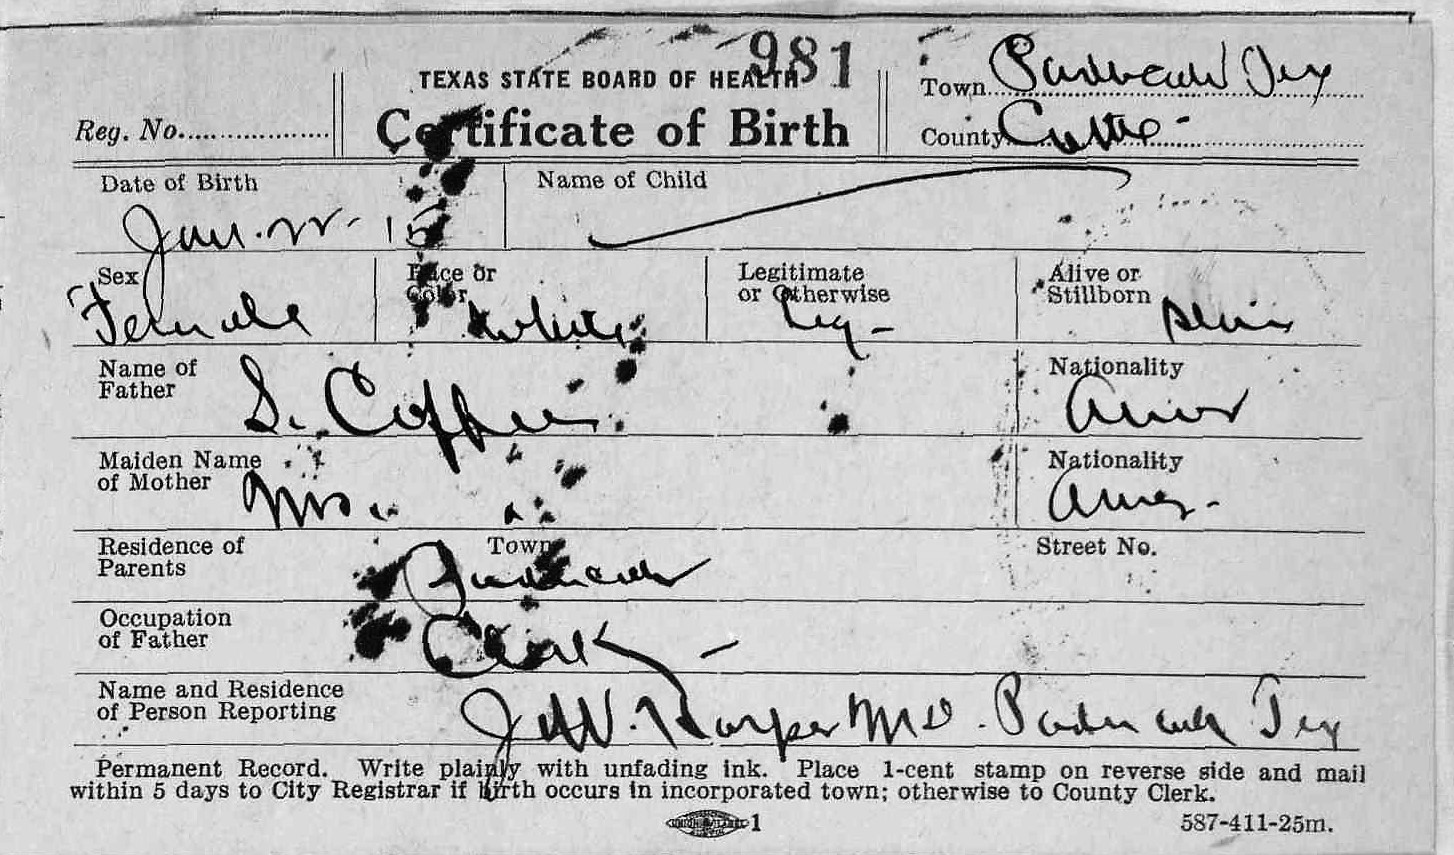 981
TEXAS STATE BOARD OF HEALTH
Certificate of Birth
Reg. No.
Town Paducah Tex
County Cottle -
Date of Birth
Jan. 22 - 15
Name of Child
Sex
Female
Race or
Color
White
Legitimate
or Otherwise
Leg -
Alive or
Stillborn
Alive
Name of
Father
S. Coffee
Nationality
Amer
Maiden Name
of Mother
Mrs.
Nationality
Amer.
Residence of
Parents
Town
Paducah
Street No.
Occupation
of Father
Clerk -
Name and Residence
of Person Reporting
Harper MD. Paducah Tex
Permanent Record. Write plainly with unfading ink. Place 1-cent stamp on reverse side and mail
within 5 days to City Registrar if birth occurs in incorporated town; otherwise to County Clerk.
1
587-411-25m.